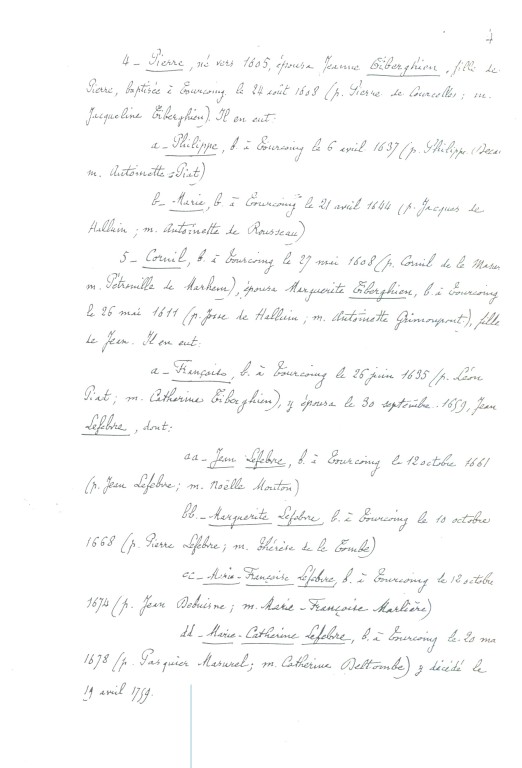 4
4 - Pierre, né vers 1605, épousa Jeanne Tiberghien, fille de
Pierre, baptisée à Tourcoing le 24 août 1608 (p. Pierre de Courcelles; m.
Jacqueline Tiberghien). Il en eut:
a - Philippe, b. à Tourcoing le 6 avril 1637 (p. Philippe
m. Antoinette Piat)
b - Marie, b. à Tourcoing le 21 avril 1644 (p. Jacques de
Halluin; m. Antoinette de Rousseau)
5 - Cornil, b. à Tourcoing le 27 mai 1608 (p. Cornil de le
m. Pétronille de Marhem), épousa Marguerite Tiberghien, b. à Tourcoing
le 26 mai 1611 (p. Josse de Halluin; m. Antoinette Grimonpont), fille
de Jean. Il en eut:
a - Françoise, b. à Tourcoing le 26 juin 1635 (p. Léon
Piat; m. Catherine Tiberghien), y épousa le 30 septembre 1659, Jean
Lefebvre, dont:
aa - Jean Lefebvre, b. à Tourcoing le 12 octobre 1661
(p. Jean Lefebvre; m. Noëlle Mouton)
bb. - Marguerite Lefebvre b. à Tourcoing le 10 octobre
1668 (p. Pierre Lefebvre; m. Thérèse de le Tombe)
cc - Marie-Françoise Lefebvre, b. à Tourcoing le 12 octobre
1674 (p. Jean Debuisne; m. Marie-Françoise Marlière)
dd - Marie-Catherine Lefebvre, b. à Tourcoing le 20 ma
1678 (p. Pasquier Masurel; m. Catherine Deltombe) y décédé le
19 avril 1759.